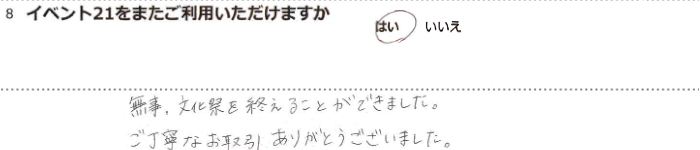 8 イベント21をまたご利用いただけますか
はい いいえ
無事、文化祭を終えることができました。
ご丁寧なお取引ありがとうございました。